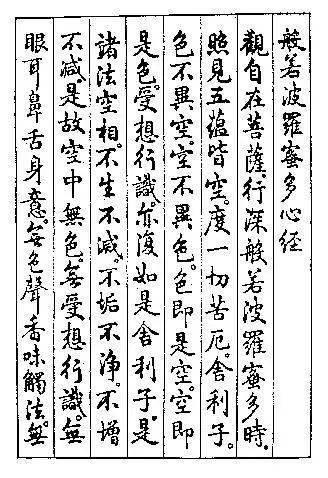 般若波羅蜜多心経
觀自在菩薩。行深般若波羅蜜多時。
照見五蘊皆空。度一切苦厄。舍利子。
色不異空。空不異色。色即是空。空即
是色。受想行識。亦復如是舍利子。是
諸法空相。不生不滅。不垢不浄。不增
不减。是故空中無色。無受想行識。無
眼耳鼻舌身意。無色聲香味觸法。無